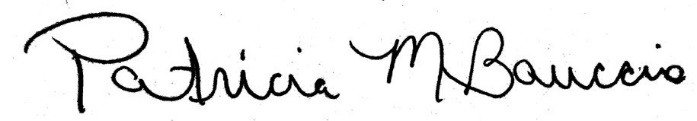 Patricia M Bauccio